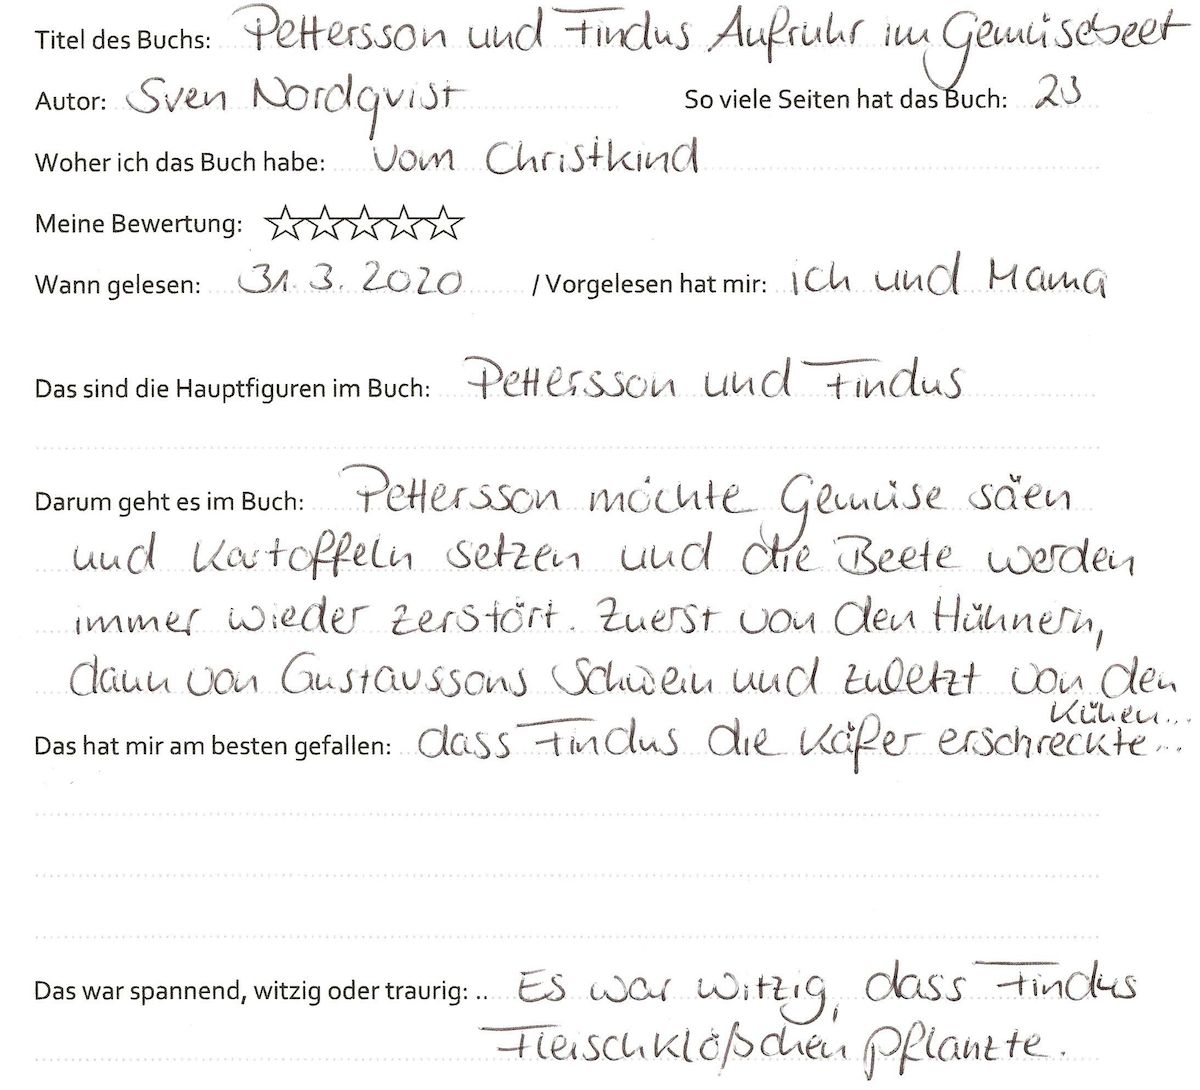 Titel des Buchs: Pettersson und Findus Aufruhr im Gemüsebeet
Autor: Sven Nordqvist So viele Seiten hat das Buch: 23
Woher ich das Buch habe: vom Christkind
Meine Bewertung: ☆☆☆☆☆
Wann gelesen: 31.3.2020 / Vorgelesen hat mir: ich und Mama
Das sind die Hauptfiguren im Buch: Pettersson und Findus
Darum geht es im Buch: Pettersson möchte Gemüse säen
und Kartoffeln setzen und die Beete werden
immer wieder zerstört. Zuerst von den Hühnern,
dann von Gustavssons Schwein und zuletzt von den
Kühen...
Das hat mir am besten gefallen: dass Findus die Käfer erschreckte...
Das war spannend, witzig oder traurig: .. Es war witzig, dass Findus
Fleischklößchen pflanzte.